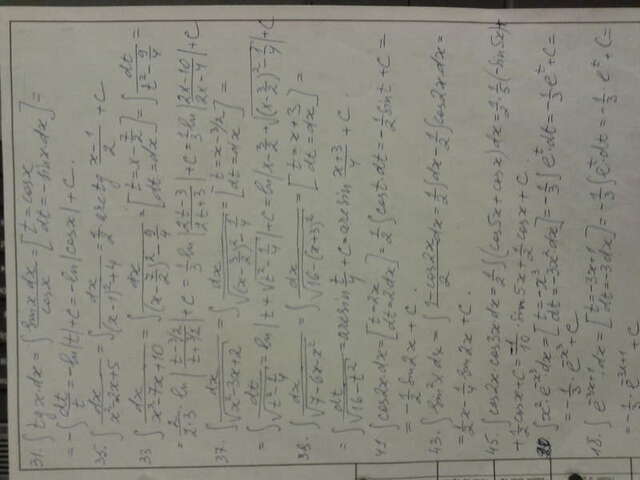 31. ∫ tg x dx = ∫ sin x dx / cos x = [t = cos x, dt = -sin x dx] =
= -∫ dt/t = -ln|t| + C = -ln|cos x| + C.
35. ∫ dx/(x²-2x+5) = ∫ dx/((x-1)²+4) = 1/2 arctg (x-1)/2 + C
33 ∫ dx/(x²-7x+10) = ∫ dx/((x-7/2)²-9/4) = [t = x-7/2, dt = dx] = ∫ dt/(t²-9/4) =
= 2/(2·3) ln|(t-3/2)/(t+3/2)| + C = 1/3 ln|(2t-3)/(2t+3)| + C = 1/3 ln|(2x-10)/(2x-4)| + C
37. ∫ dx/√(x²-3x+2) = ∫ dx/√((x-3/2)²-1/4) = [t = x-3/2, dt = dx] =
= ∫ dt/√(t²-1/4) = ln|t+√(t²-1/4)| + C = ln|x-3/2+√((x-3/2)²-1/4)| + C
38. ∫ dx/√(7-6x-x²) = ∫ dx/√(16-(x+3)²) = [t = x+3, dt = dx] =
= ∫ dt/√(16-t²) = arcsin t/4 + C = arcsin (x+3)/4 + C.
41 ∫ cos2x dx = [t = 2x, dt = 2dx] = 1/2 ∫ cos t dt = -1/2 sin t + C =
= -1/2 sin 2x + C.
43. ∫ sin²x dx = ∫ (1-cos2x)/2 dx = 1/2 ∫ dx - 1/2 ∫ cos2x dx =
= 1/2 x - 1/4 sin 2x + C.
45. ∫ cos2x cos3x dx = 1/2 ∫ (cos5x + cos x) dx = 1/2 · 1/5 (-sin5x) +
+ 1/2 cos x + C = -1/10 sin 5x + 1/2 cos x + C.
∫ x² e^(-x³) dx = [t = -x³, dt = -3x² dx] = -1/3 ∫ e^t dt = -1/3 e^t + C =
= -1/3 · e^(x³) + C
18. ∫ e^(-3x+1) · dx = [t = -3x+1, dt = -3dx] = -1/3 ∫ e^t · dt = -1/3 · e^t + C =
= -1/3 · e^(-3x+1) + C